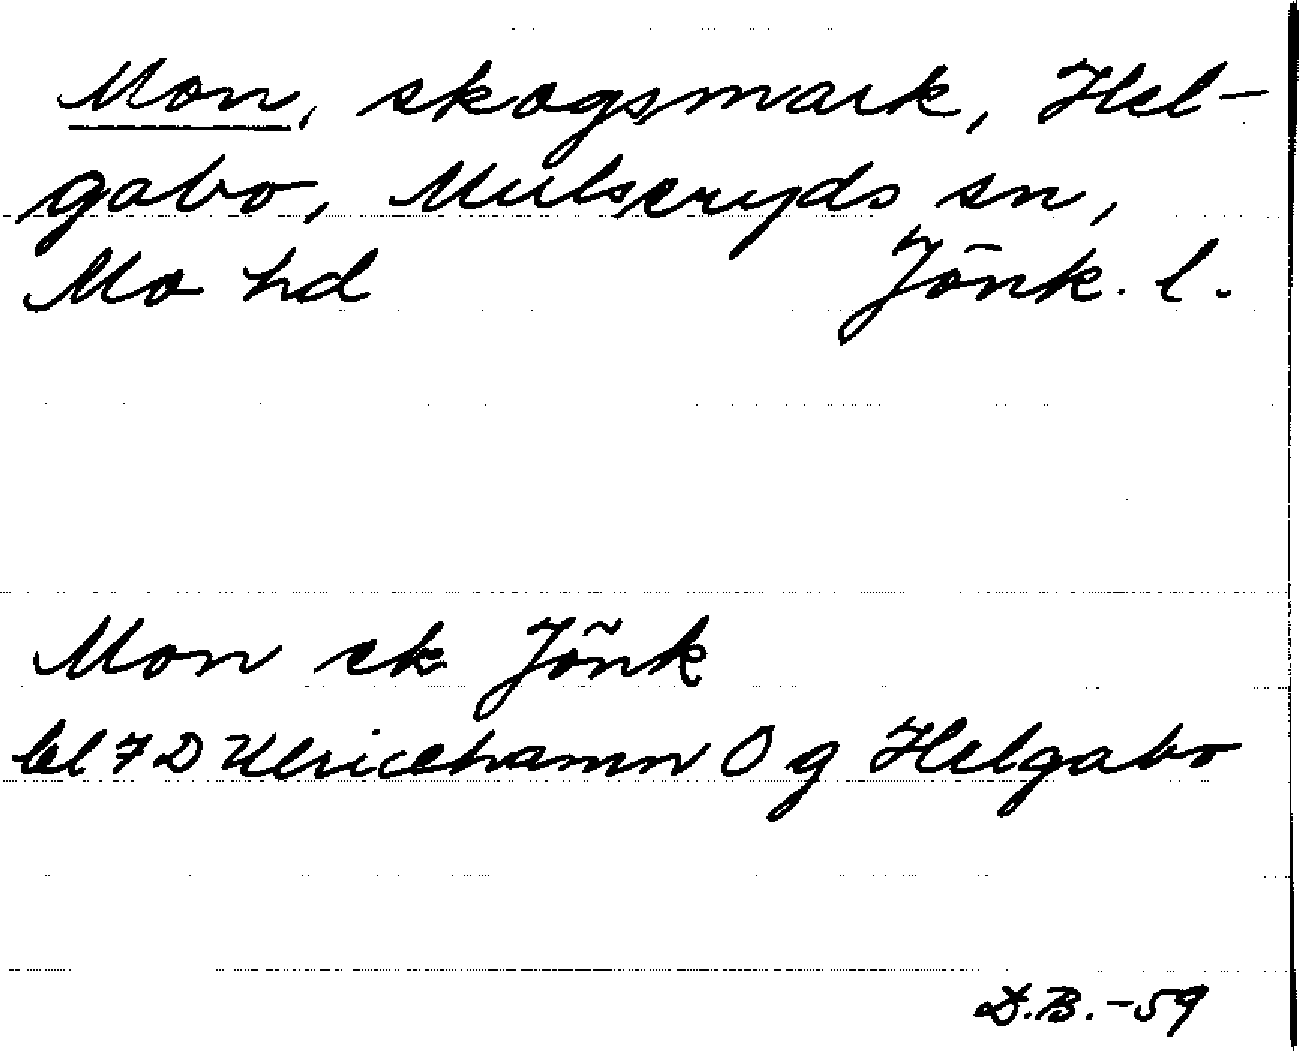 Mon, skogsmark, Hel-
gabo, Mulseryds sn,
Mo hd Jönk. l.
Mon sk Jönk
bl 7 D Ulricehamn O g Helgabo
D.B. -59